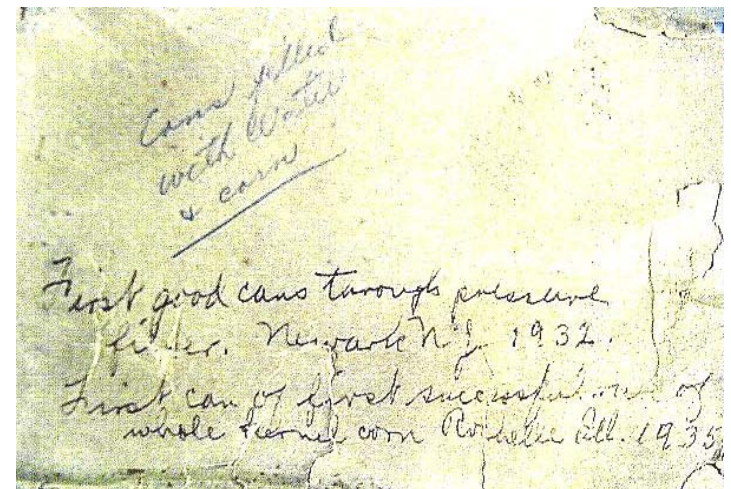 Cans filled
with Water
& corn
First good cans through pressure
filler. Newark N.J. 1932.
First can of first successful run of
whole kernel corn Rochelle Ill. 1935